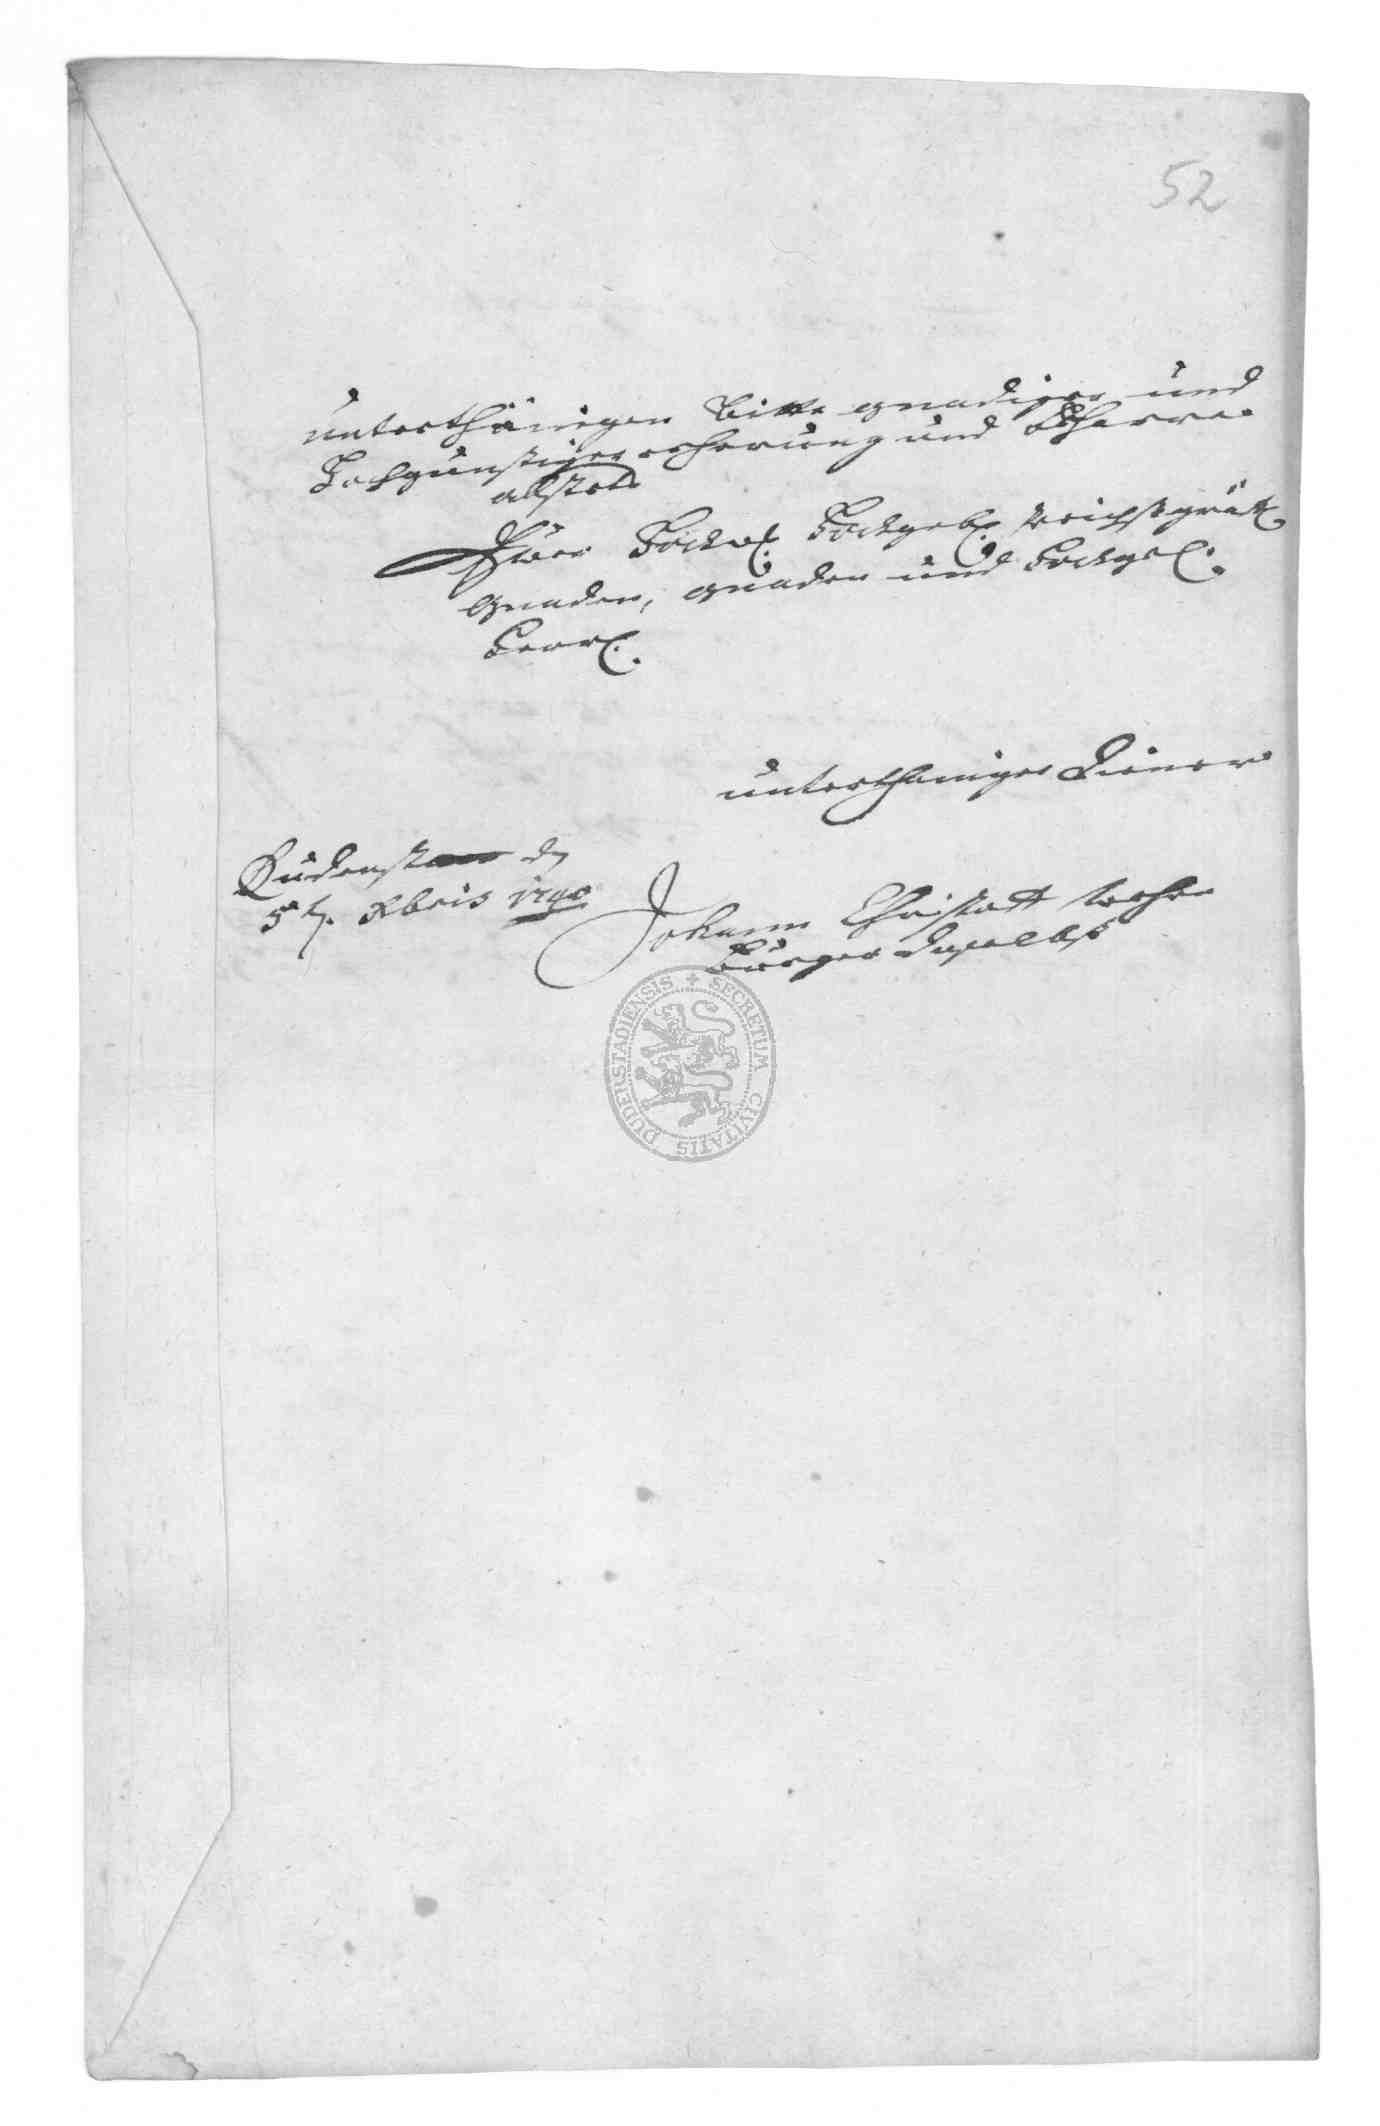 52
unterthänigen Bitte gnadiger und
Hochgunstiger erhorung und Verharre
allstets
Ewer Hochw. Hochgeb. Reichsgräff.
Gnaden, gnaden und Hochgel.
Herrl.
unterthaniger Diener
Duderstatt d
5t. Xbris 1740
Johann Christoff
Bürger daselbst
SECRETUM CIVITATIS DUDERSTADIENSIS